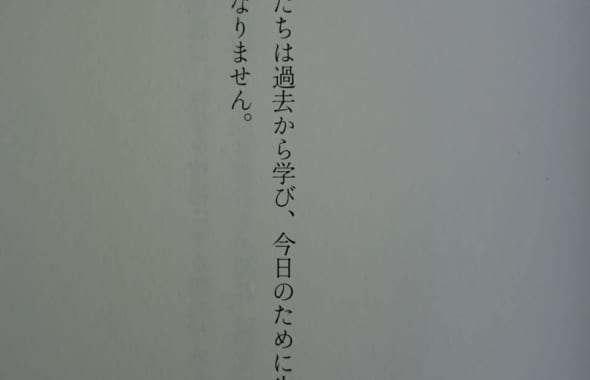 たちは過去から学び、今日のために
なりません。